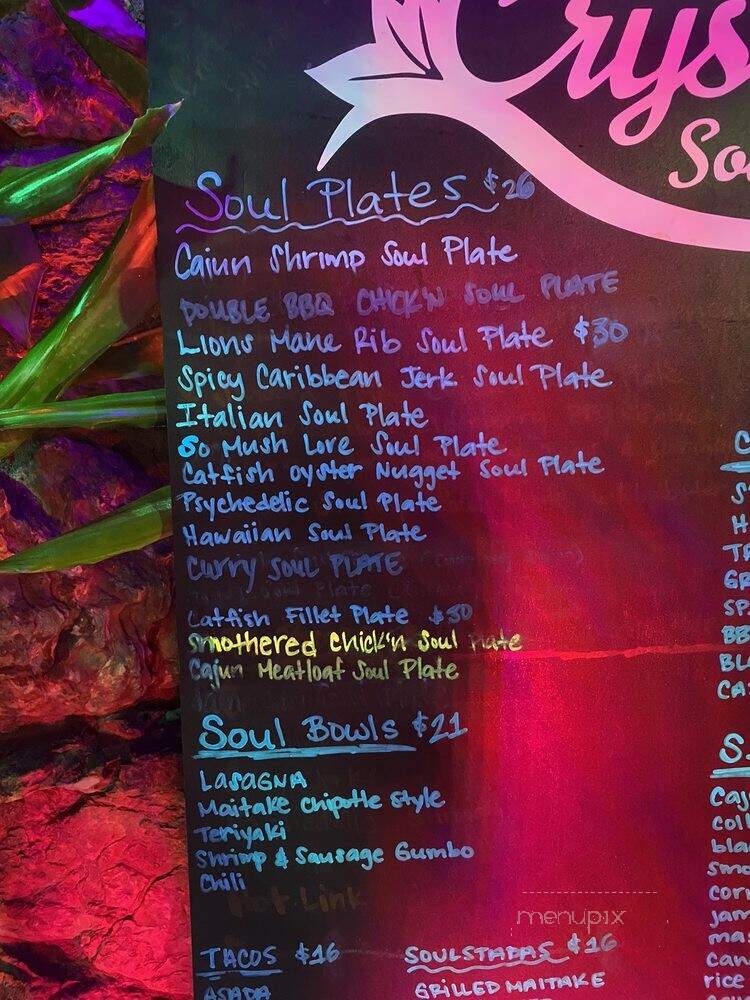 Crys
So
Soul Plates $26
Cajun Shrimp Soul Plate
DOUBLE BBQ CHICK'N SOUL PLATE
Lions Mane Rib Soul Plate $30
Spicy Caribbean Jerk Soul Plate
Italian Soul Plate
So Mush Love Soul Plate
Catfish Oyster Nugget Soul Plate
Psychedelic Soul Plate
Hawaiian Soul Plate
Curry SOUL PLATE
Catfish Fillet Plate $30
Smothered Chick'n Soul Plate
Cajun Meatloaf Soul Plate
Soul Bowls $21
LASAGNA
Maitake Chipotle Style
Teriyaki
Shrimp & Sausage Gumbo
Chili
Hot Link
TACOS $16
ASADA
SOULSTADAS $16
GRILLED MAITAKE
C
S
H
TR
GR
SP
BB
BL
CA
S
Caju
coll
bla
Smo
corn
jam
mas
can
rice
menupix